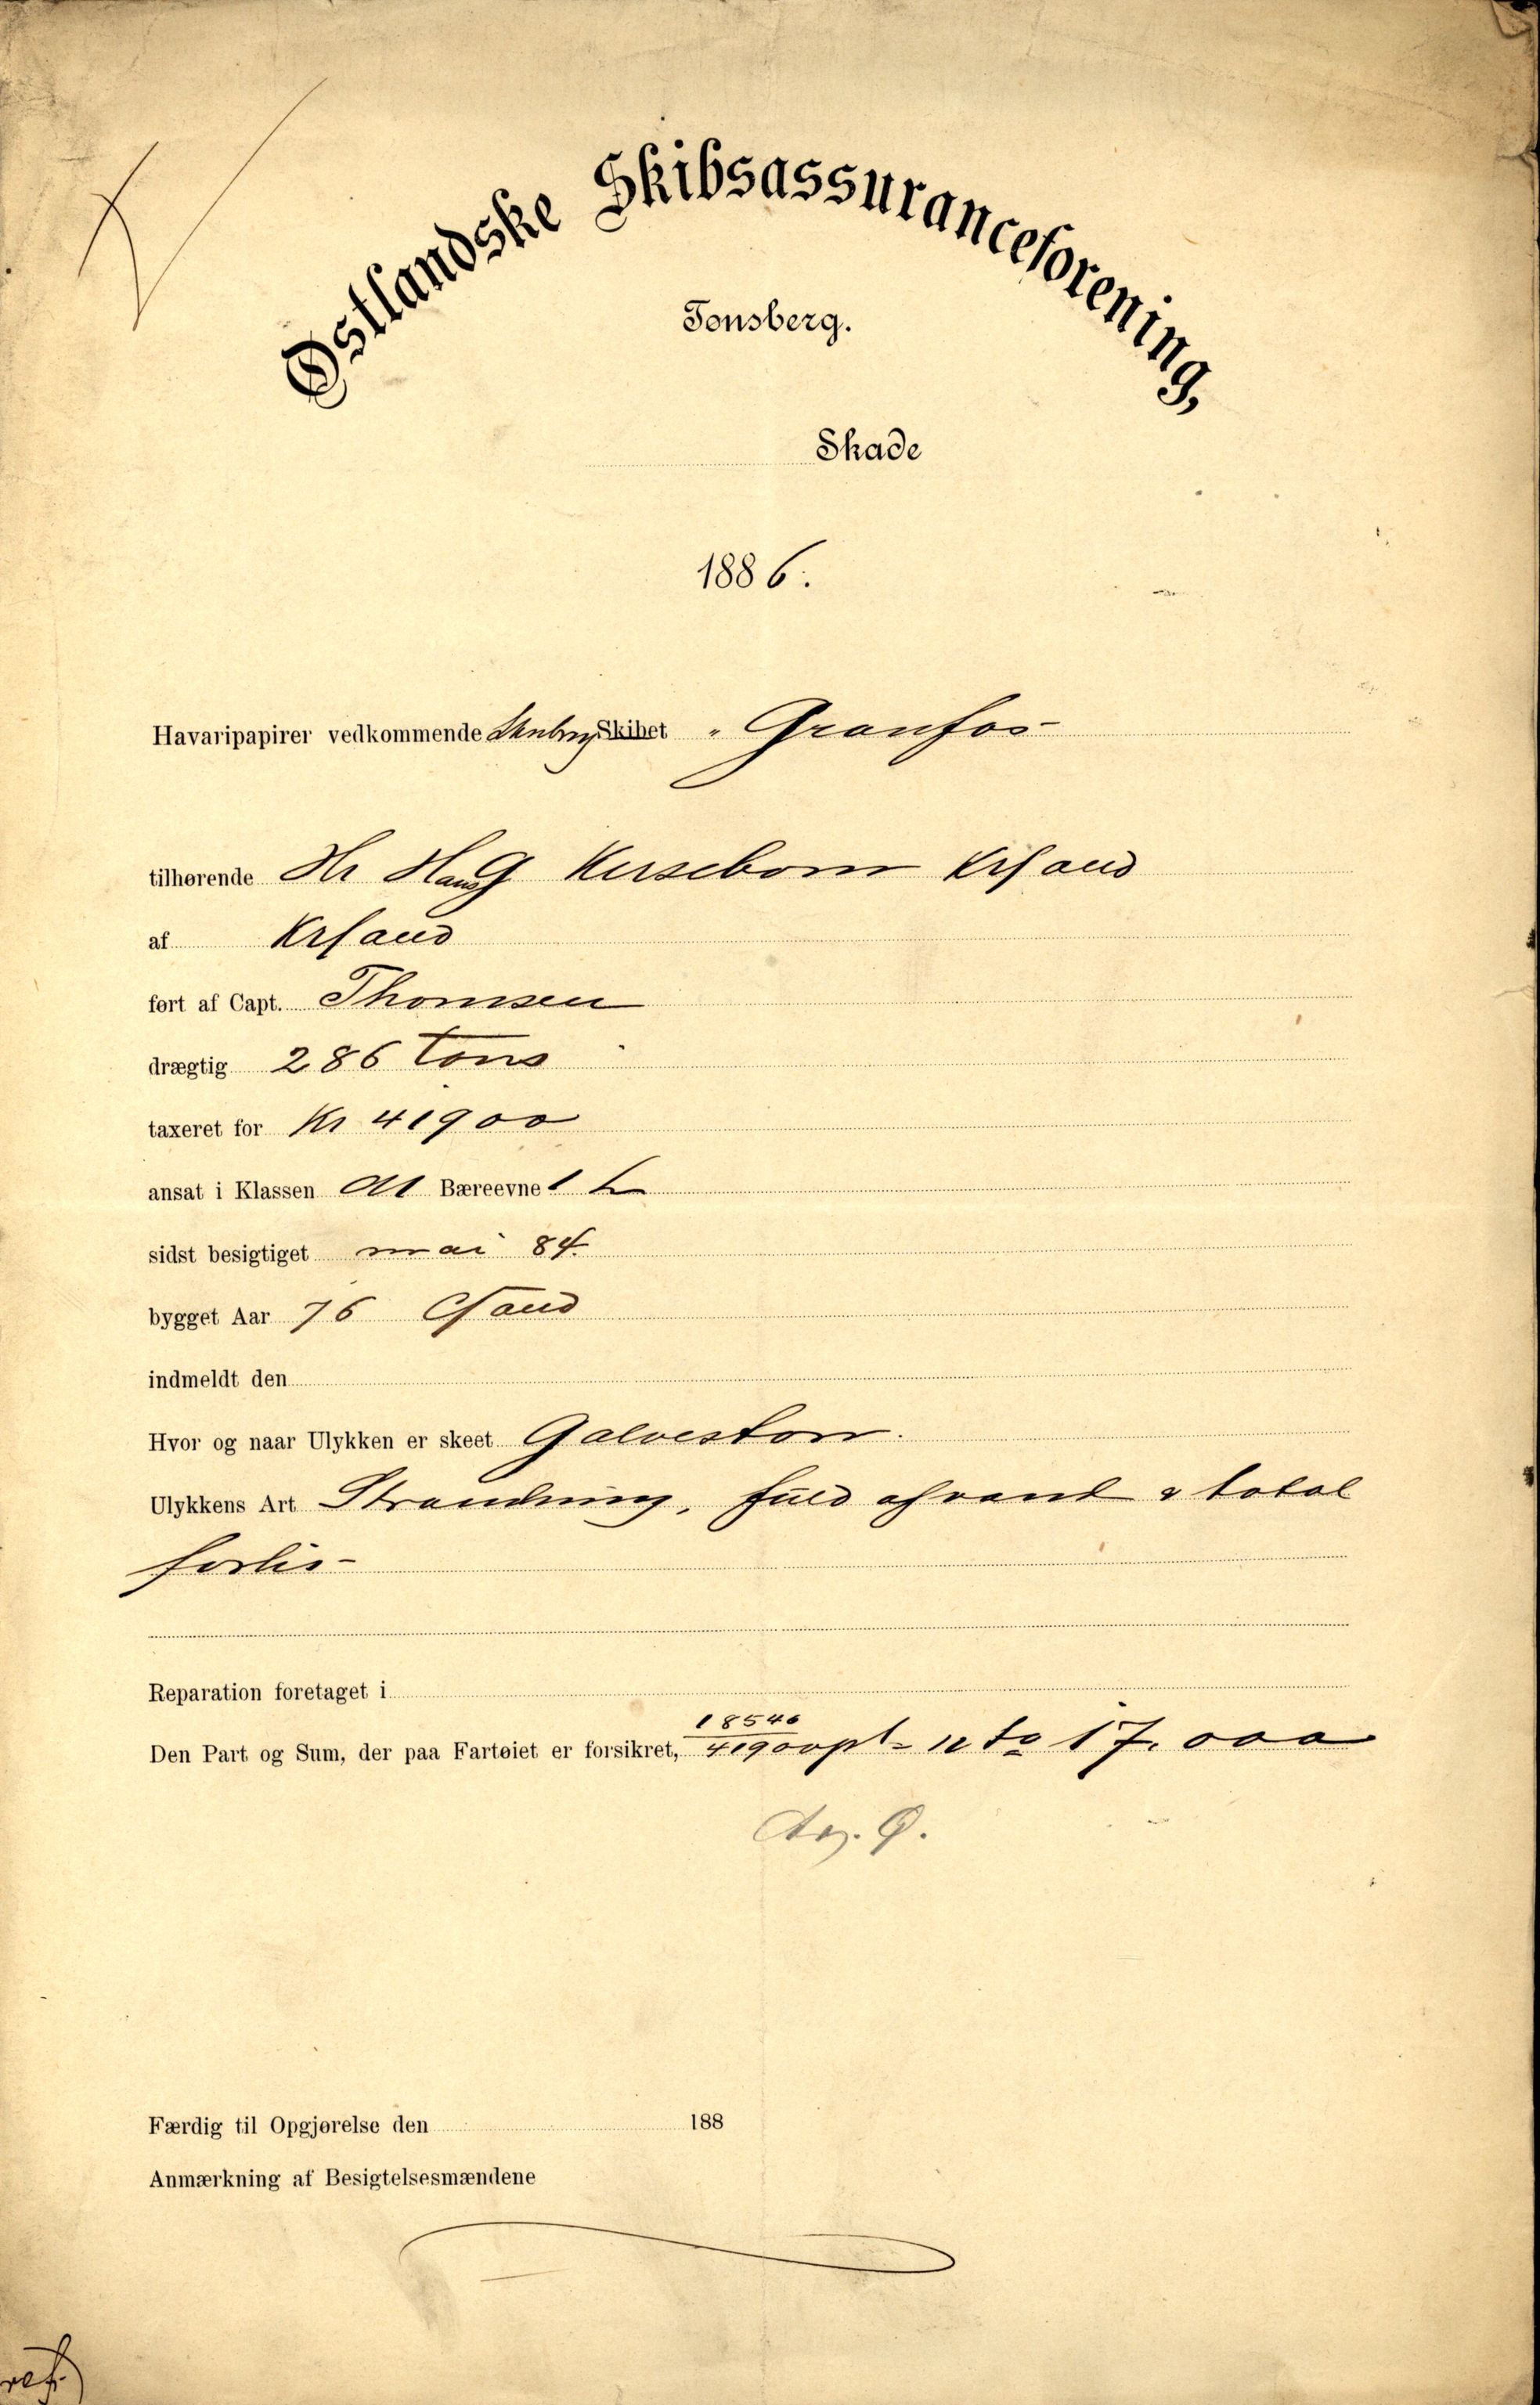 Østlandske Skibsassuranceforening,
Tønsberg.
Skade
1886.
Havaripapirer vedkommende Skibet "Granfos
tilhørende Hr Hans G Kersebom Krsand
af Krsand
ført af Capt. Thomsen
drægtig 286 tons
taxeret for Kr 41900
ansat i Klassen A1 Bæreevne 1
sidst besigtiget mai 84.
bygget Aar 76 Csand
indmeldt den
Hvor og naar Ulykken er skeet Galveston.
Ulykkens Art Strandning, fuld & total
forlis
Reparation foretaget i
18546
Den Part og Sum, der paa Fartøiet er forsikret, 41900 17.000
Færdig til Opgjørelse den 188
Anmærkning af Besigtelsesmændene